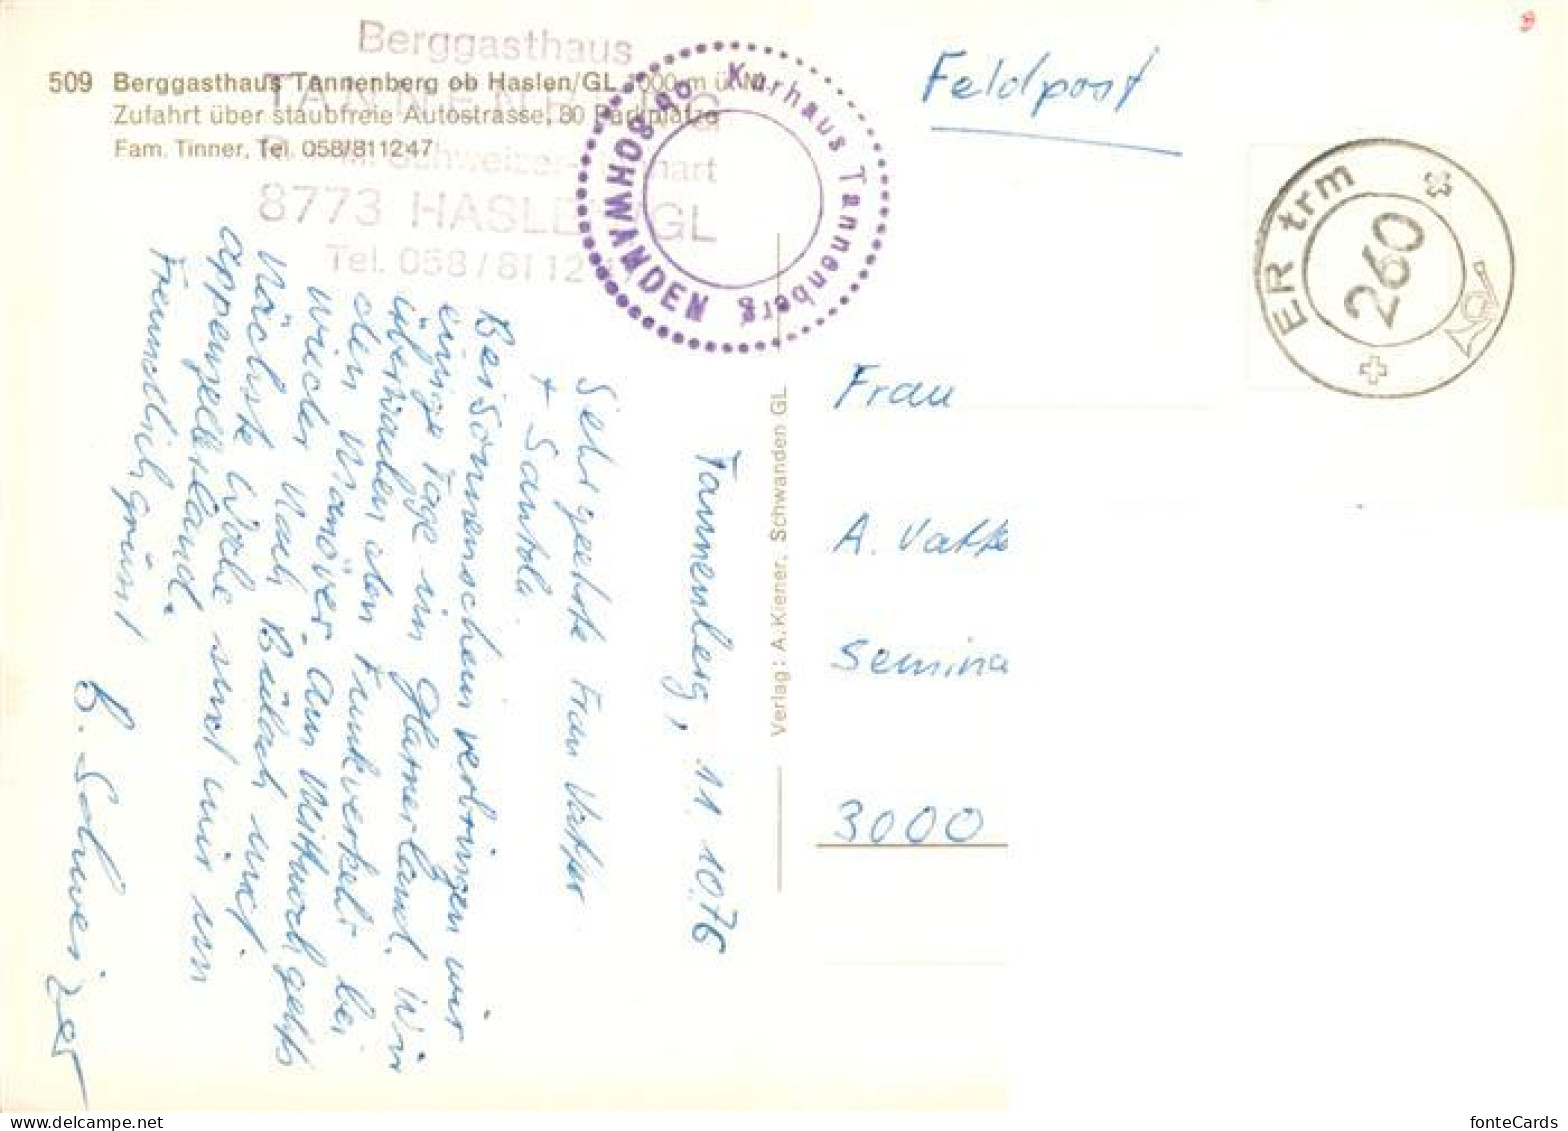 509 Berggasthaus Tannenberg ob Haslen/GL 1000 m ü. M.
Zufahrt über staubfreie Autostrasse, 80 Parkplätze
Fam. Tinner, Tel. 058/811247
Berggasthaus
TANNENBERG
Schweizer-
8773 HASLEN GL
Tel. 058/8112
Kurhaus Tannenberg
ob SCHWANDEN
Feldpost
ER trm
260
Tannenberg, 11.10.76
Sehr geehrte Frau
+ Santola
Bei Sonnenschein verbringen wir
einige Tage im Glarnerland. Wir
überwachen den Funkverkehr bei
den Manöver. Am Mittwoch gehts
wieder nach Bülach und
nächste Woche sind wir im
Appenzellerland.
Freundlich grüsst
B. Schweizer
Verlag: A. Kiener, Schwanden GL
Frau
A.
Semina
3000
fonteCards